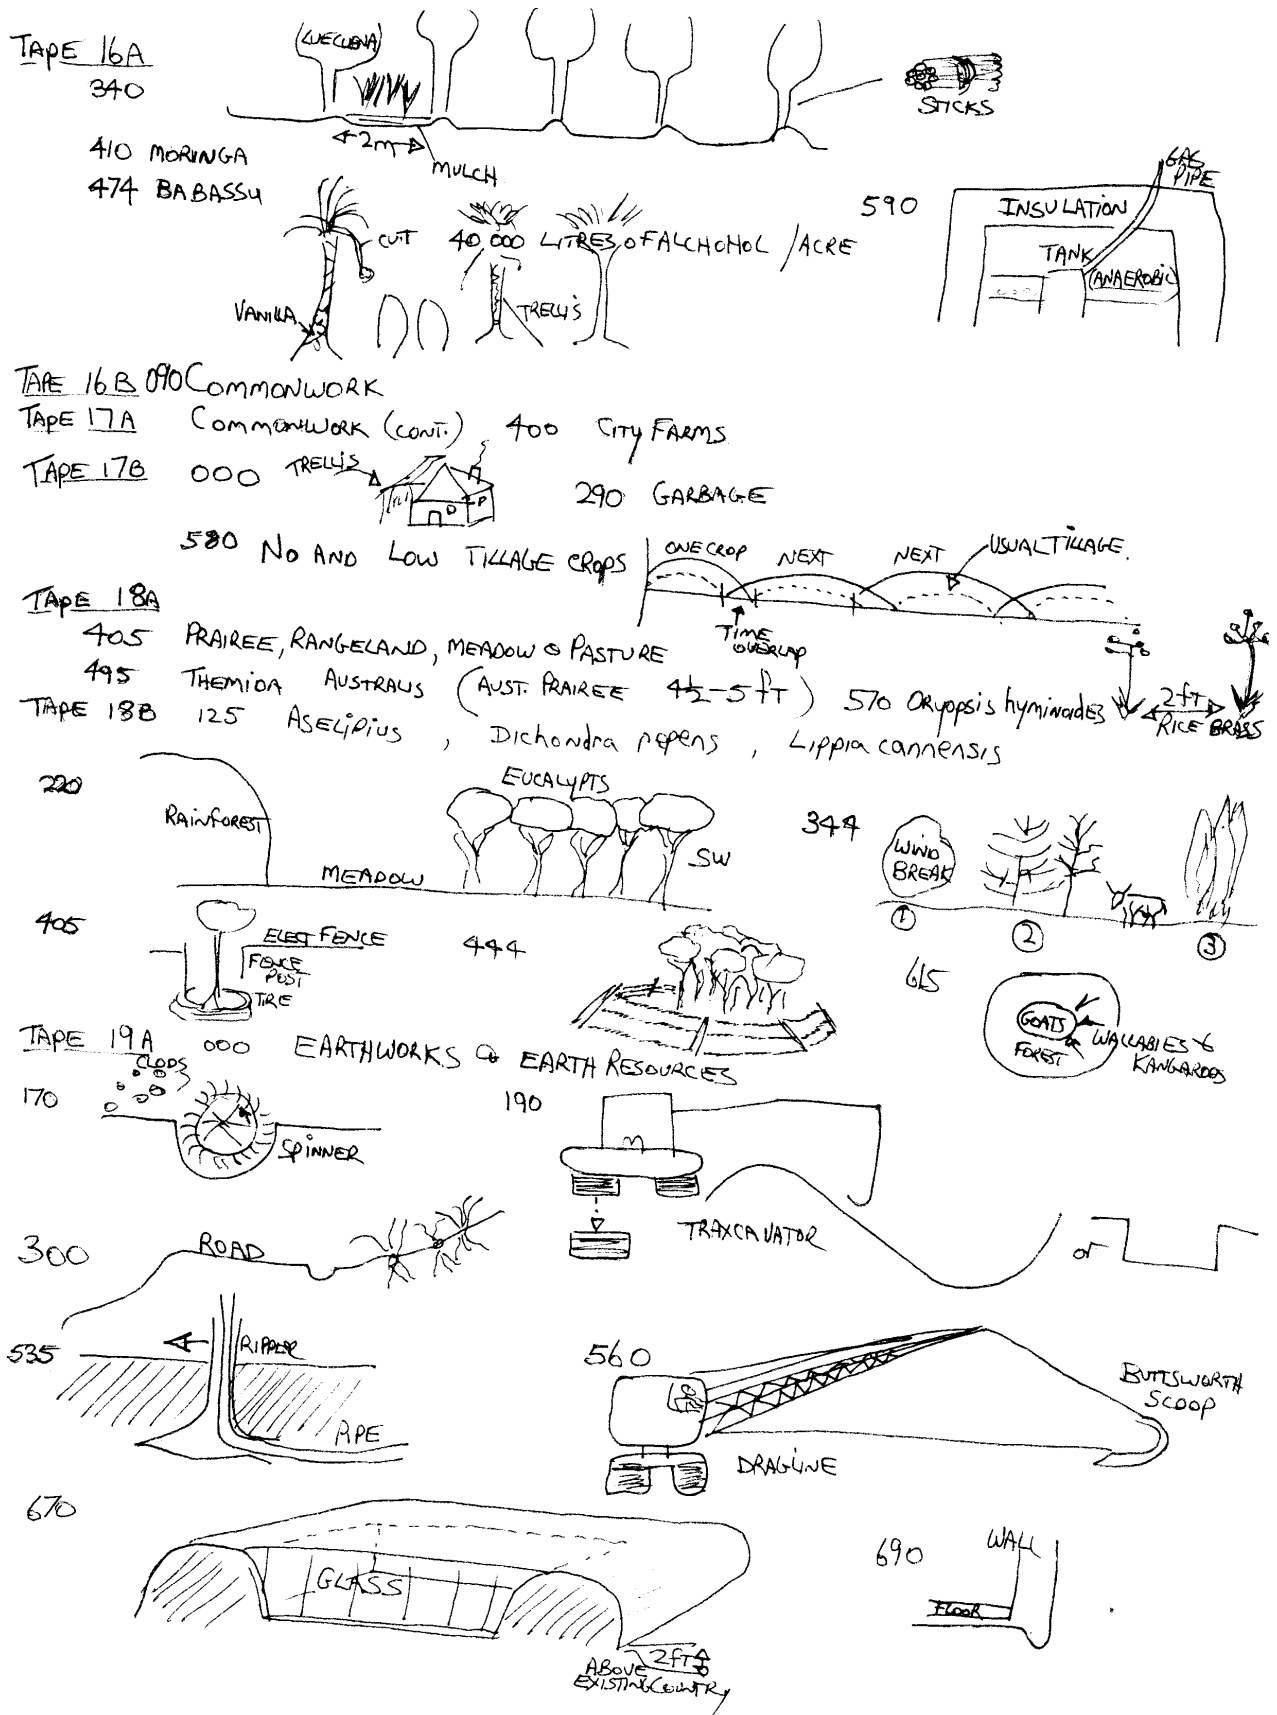 TAPE 16A
340
(LUECUENA)
STICKS
2m
MULCH
410 MORINGA
474 BABASSU
CUT 40 000 LITRES OF ALCHOHOL / ACRE
VANILLA
TRELLIS
590
GAS PIPE
INSULATION
TANK
(ANAEROBIC)
TAPE 16B 090 COMMONWORK
TAPE 17A COMMONWORK (CONT.) 400 CITY FARMS
TAPE 17B 000 TRELLIS
D P
290 GARBAGE
580 NO AND LOW TILLAGE CROPS
ONE CROP NEXT NEXT USUAL TILLAGE
TIME OVERLAP
TAPE 18A
405 PRAIREE, RANGELAND, MEADOW & PASTURE
495 THEMIDA AUSTRALIS (AUST. PRAIREE 4½-5 FT) 570 Oryopsis hyminoides
2 FT
RICE GRASS
TAPE 18B 125 ASELIPIUS, Dichondra repens, Lippia cannensis
220
RAINFOREST
MEADOW
EUCALYPTS
SW
344
WIND BREAK
1
2
3
405
ELECT FENCE
FENCE POST
TIRE
444
615
GOATS
FOREST
WALLABIES & KANGAROOS
TAPE 19A 000 EARTHWORKS & EARTH RESOURCES
CLODS
170
SPINNER
190
TRAXCAVATOR
or
300
ROAD
535
RIPPER
PIPE
560
BUTTSWORTH SCOOP
DRAGLINE
670
GLASS
2FT
ABOVE EXISTING COUNTRY
690
WALL
FLOOR